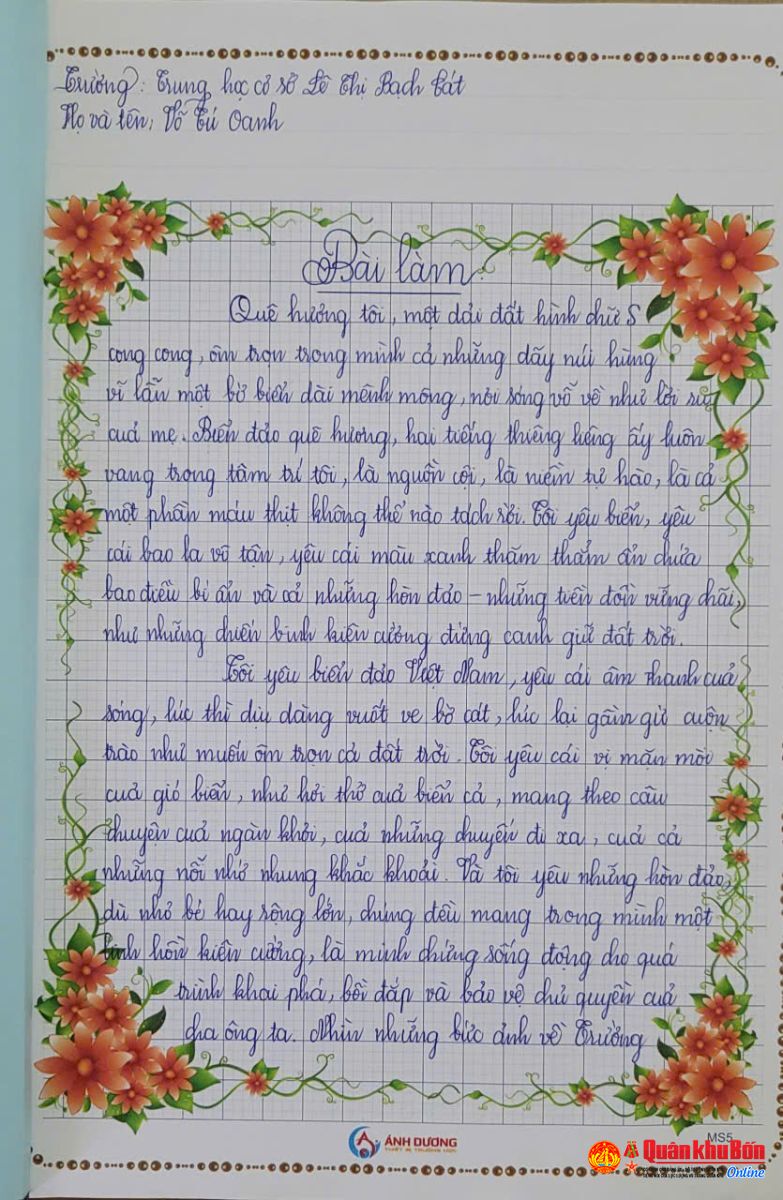 Trường: Trung học cơ sở Lê Thị Bạch Cát
Họ và tên: Võ Tú Oanh
Bài làm:
Quê hương tôi, một dải đất hình chữ S
cong cong, ôm trọn trong mình cả những dãy núi hùng
vĩ lẫn một bờ biển dài mênh mông, nơi sóng vỗ về như lời ru
của mẹ. Biển đảo quê hương, hai tiếng thiêng liêng ấy luôn
vang trong tâm trí tôi, là nguồn cội, là niềm tự hào, là cả
một phần máu thịt không thể nào tách rời. Tôi yêu biển, yêu
cái bao la vô tận, yêu cái màu xanh thăm thẳm ẩn chứa
bao điều bí ẩn và cả những hòn đảo – những tiền đồn vững chãi,
như những chiến binh kiên cường đứng canh giữ đất trời.
Tôi yêu biển đảo Việt Nam, yêu cái âm thanh của
sóng, lúc thì dịu dàng vuốt ve bờ cát, lúc lại gầm gừ cuộn
trào như muốn ôm trọn cả đất trời. Tôi yêu cái vị mặn mòi
của gió biển, như hơi thở của biển cả, mang theo câu
chuyện của ngàn khơi, của những chuyến đi xa, của cả
những nỗi nhớ nhung khắc khoải. Và tôi yêu những hòn đảo,
dù nhỏ bé hay rộng lớn, chúng đều mang trong mình một
linh hồn kiên cường, là minh chứng sống động cho quá
trình khai phá, bồi đắp và bảo vệ chủ quyền của
cha ông ta. Nhìn những bức ảnh về Trường
ÁNH DƯƠNG
THIẾT BỊ TRƯỜNG HỌC
MS5
Quân khu Bốn
Online